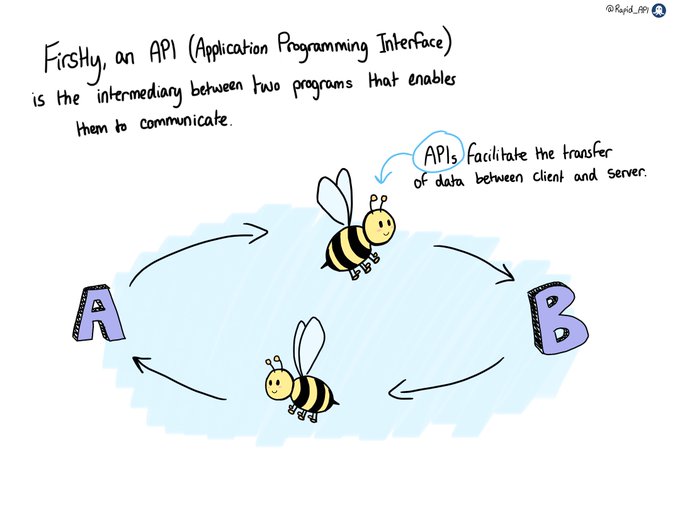 @Rapid_API
Firstly, an API (Application Programming Interface)
is the intermediary between two programs that enables
them to communicate.
APIs facilitate the transfer
of data between client and server.
A
B